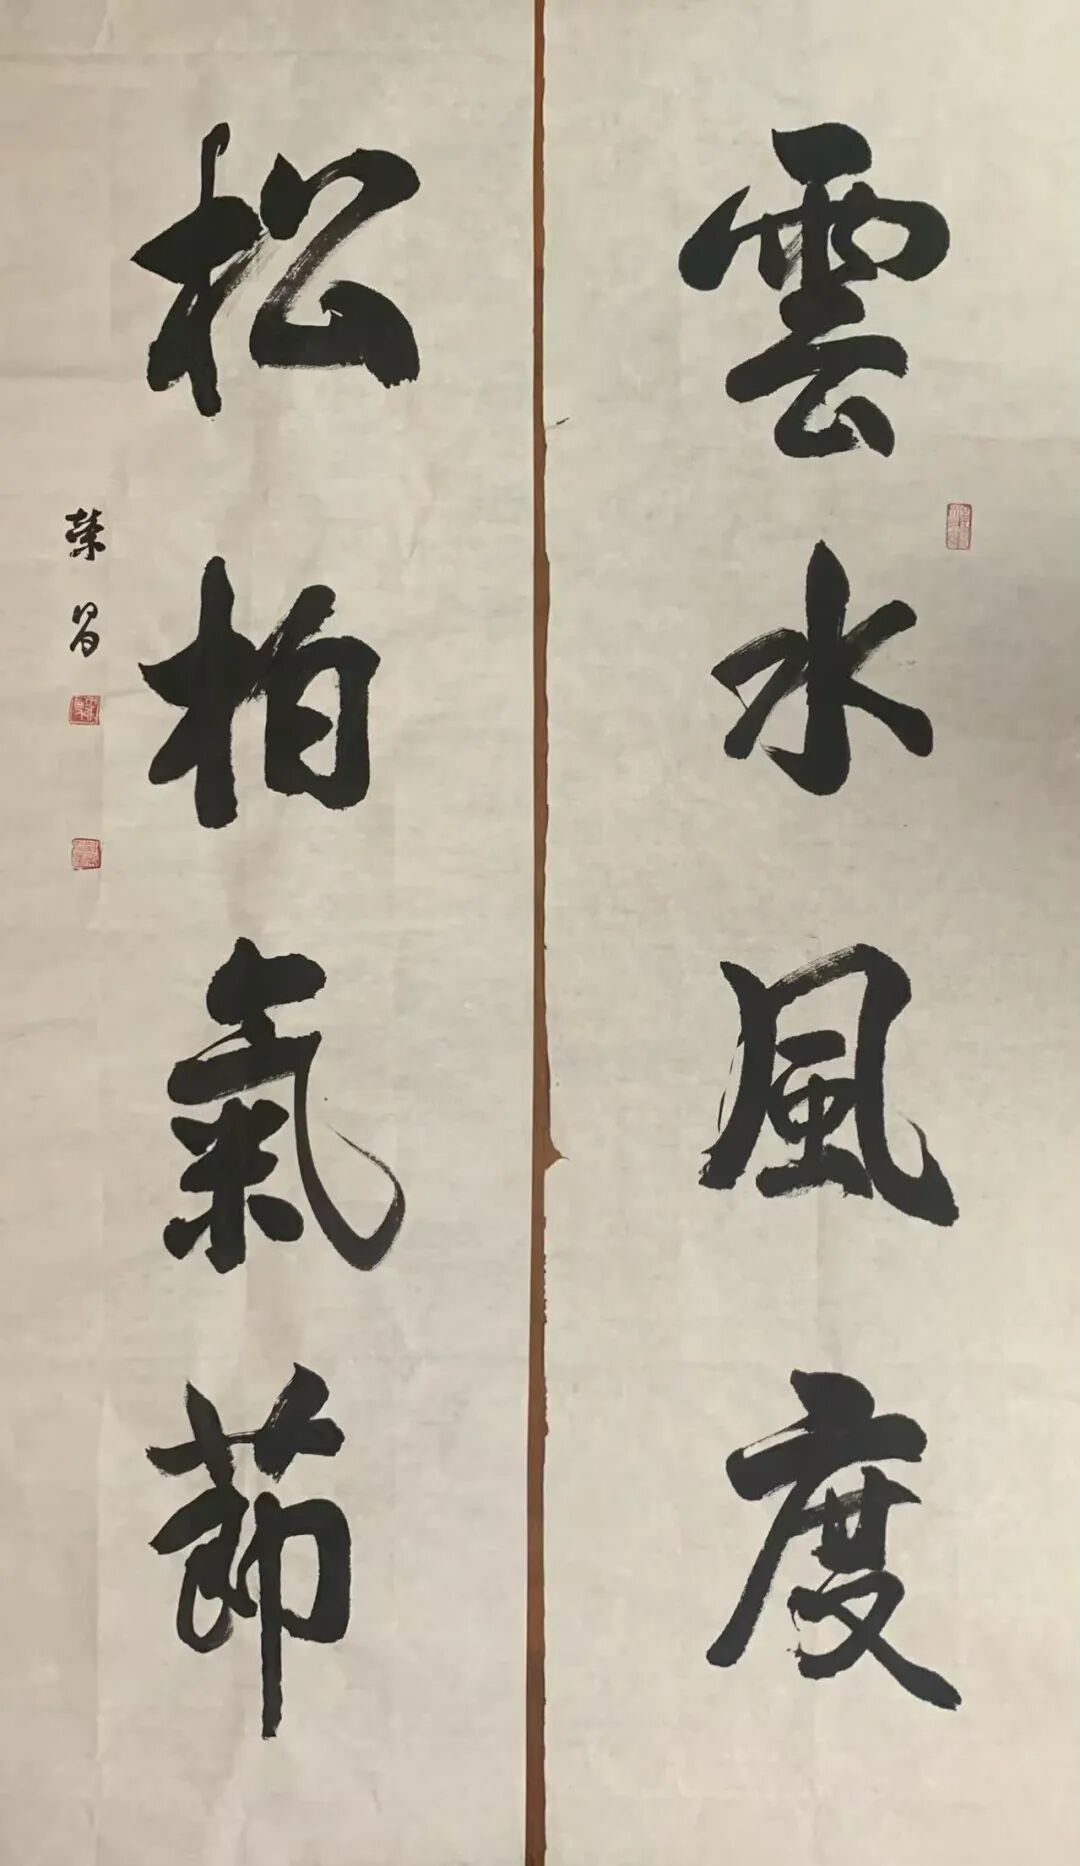 雲水風度
松柏氣節
榮昌